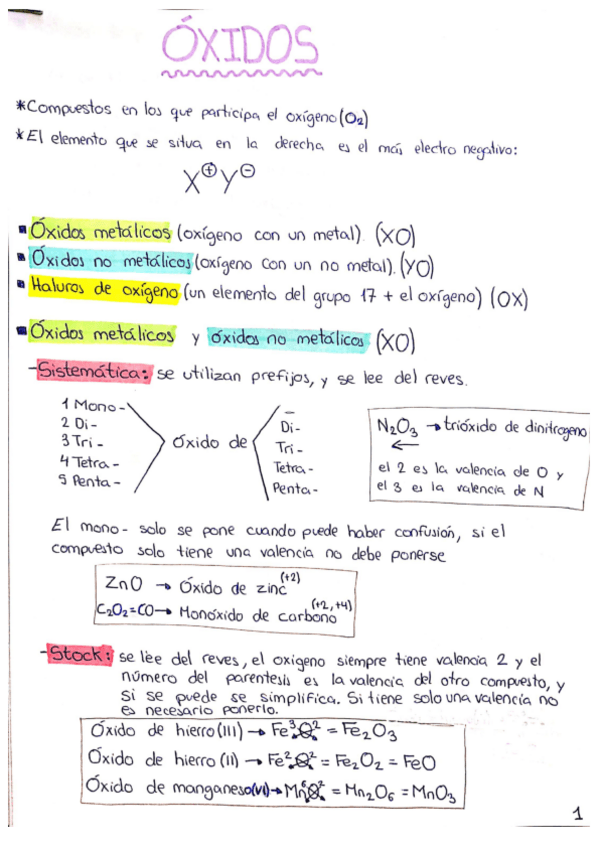 ÓXIDOS
*Compuestos en los que participa el oxígeno (O₂)
*El elemento que se situa en la derecha es el más electro negativo:
X⊕Y⊖
▪Óxidos metálicos (oxígeno con un metal). (XO)
▪Óxidos no metálicos (oxígeno con un no metal). (YO)
▪Haluros de oxígeno (un elemento del grupo 17 + el oxígeno) (OX)
▪Óxidos metálicos y óxidos no metálicos (XO)
-Sistemática: se utilizan prefijos, y se lee del reves.
1 Mono-
2 Di-
3 Tri-
4 Tetra-
5 Penta-
óxido de
-
Di-
Tri-
Tetra-
Penta-
N₂O₃ → trióxido de dinitrogeno
←
el 2 es la valencia de O y
el 3 es la valencia de N
El mono- solo se pone cuando puede haber confusión, si el
compuesto solo tiene una valencia no debe ponerse
ZnO → Óxido de zinc (+2)
C₂O₂=CO→ Monóxido de carbono (+2,+4)
-Stock: se lee del reves, el oxigeno siempre tiene valencia 2 y el
número del parentesis es la valencia del otro compuesto, y
si se puede se simplifica. Si tiene solo una valencia no
es necesario ponerlo.
Óxido de hierro (III) → Fe³O² = Fe₂O₃
Óxido de hierro (II) → Fe²O² = Fe₂O₂ = FeO
Óxido de manganeso(VI)→ Mn⁶O² = Mn₂O₆ = MnO₃
1